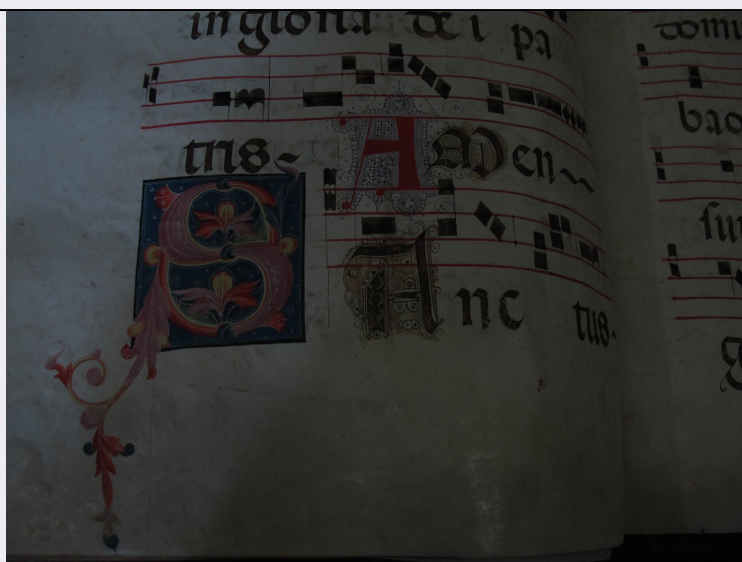 in gloria dei pa
tris. Amen
SAnc tus.
domi
bao
sun
g